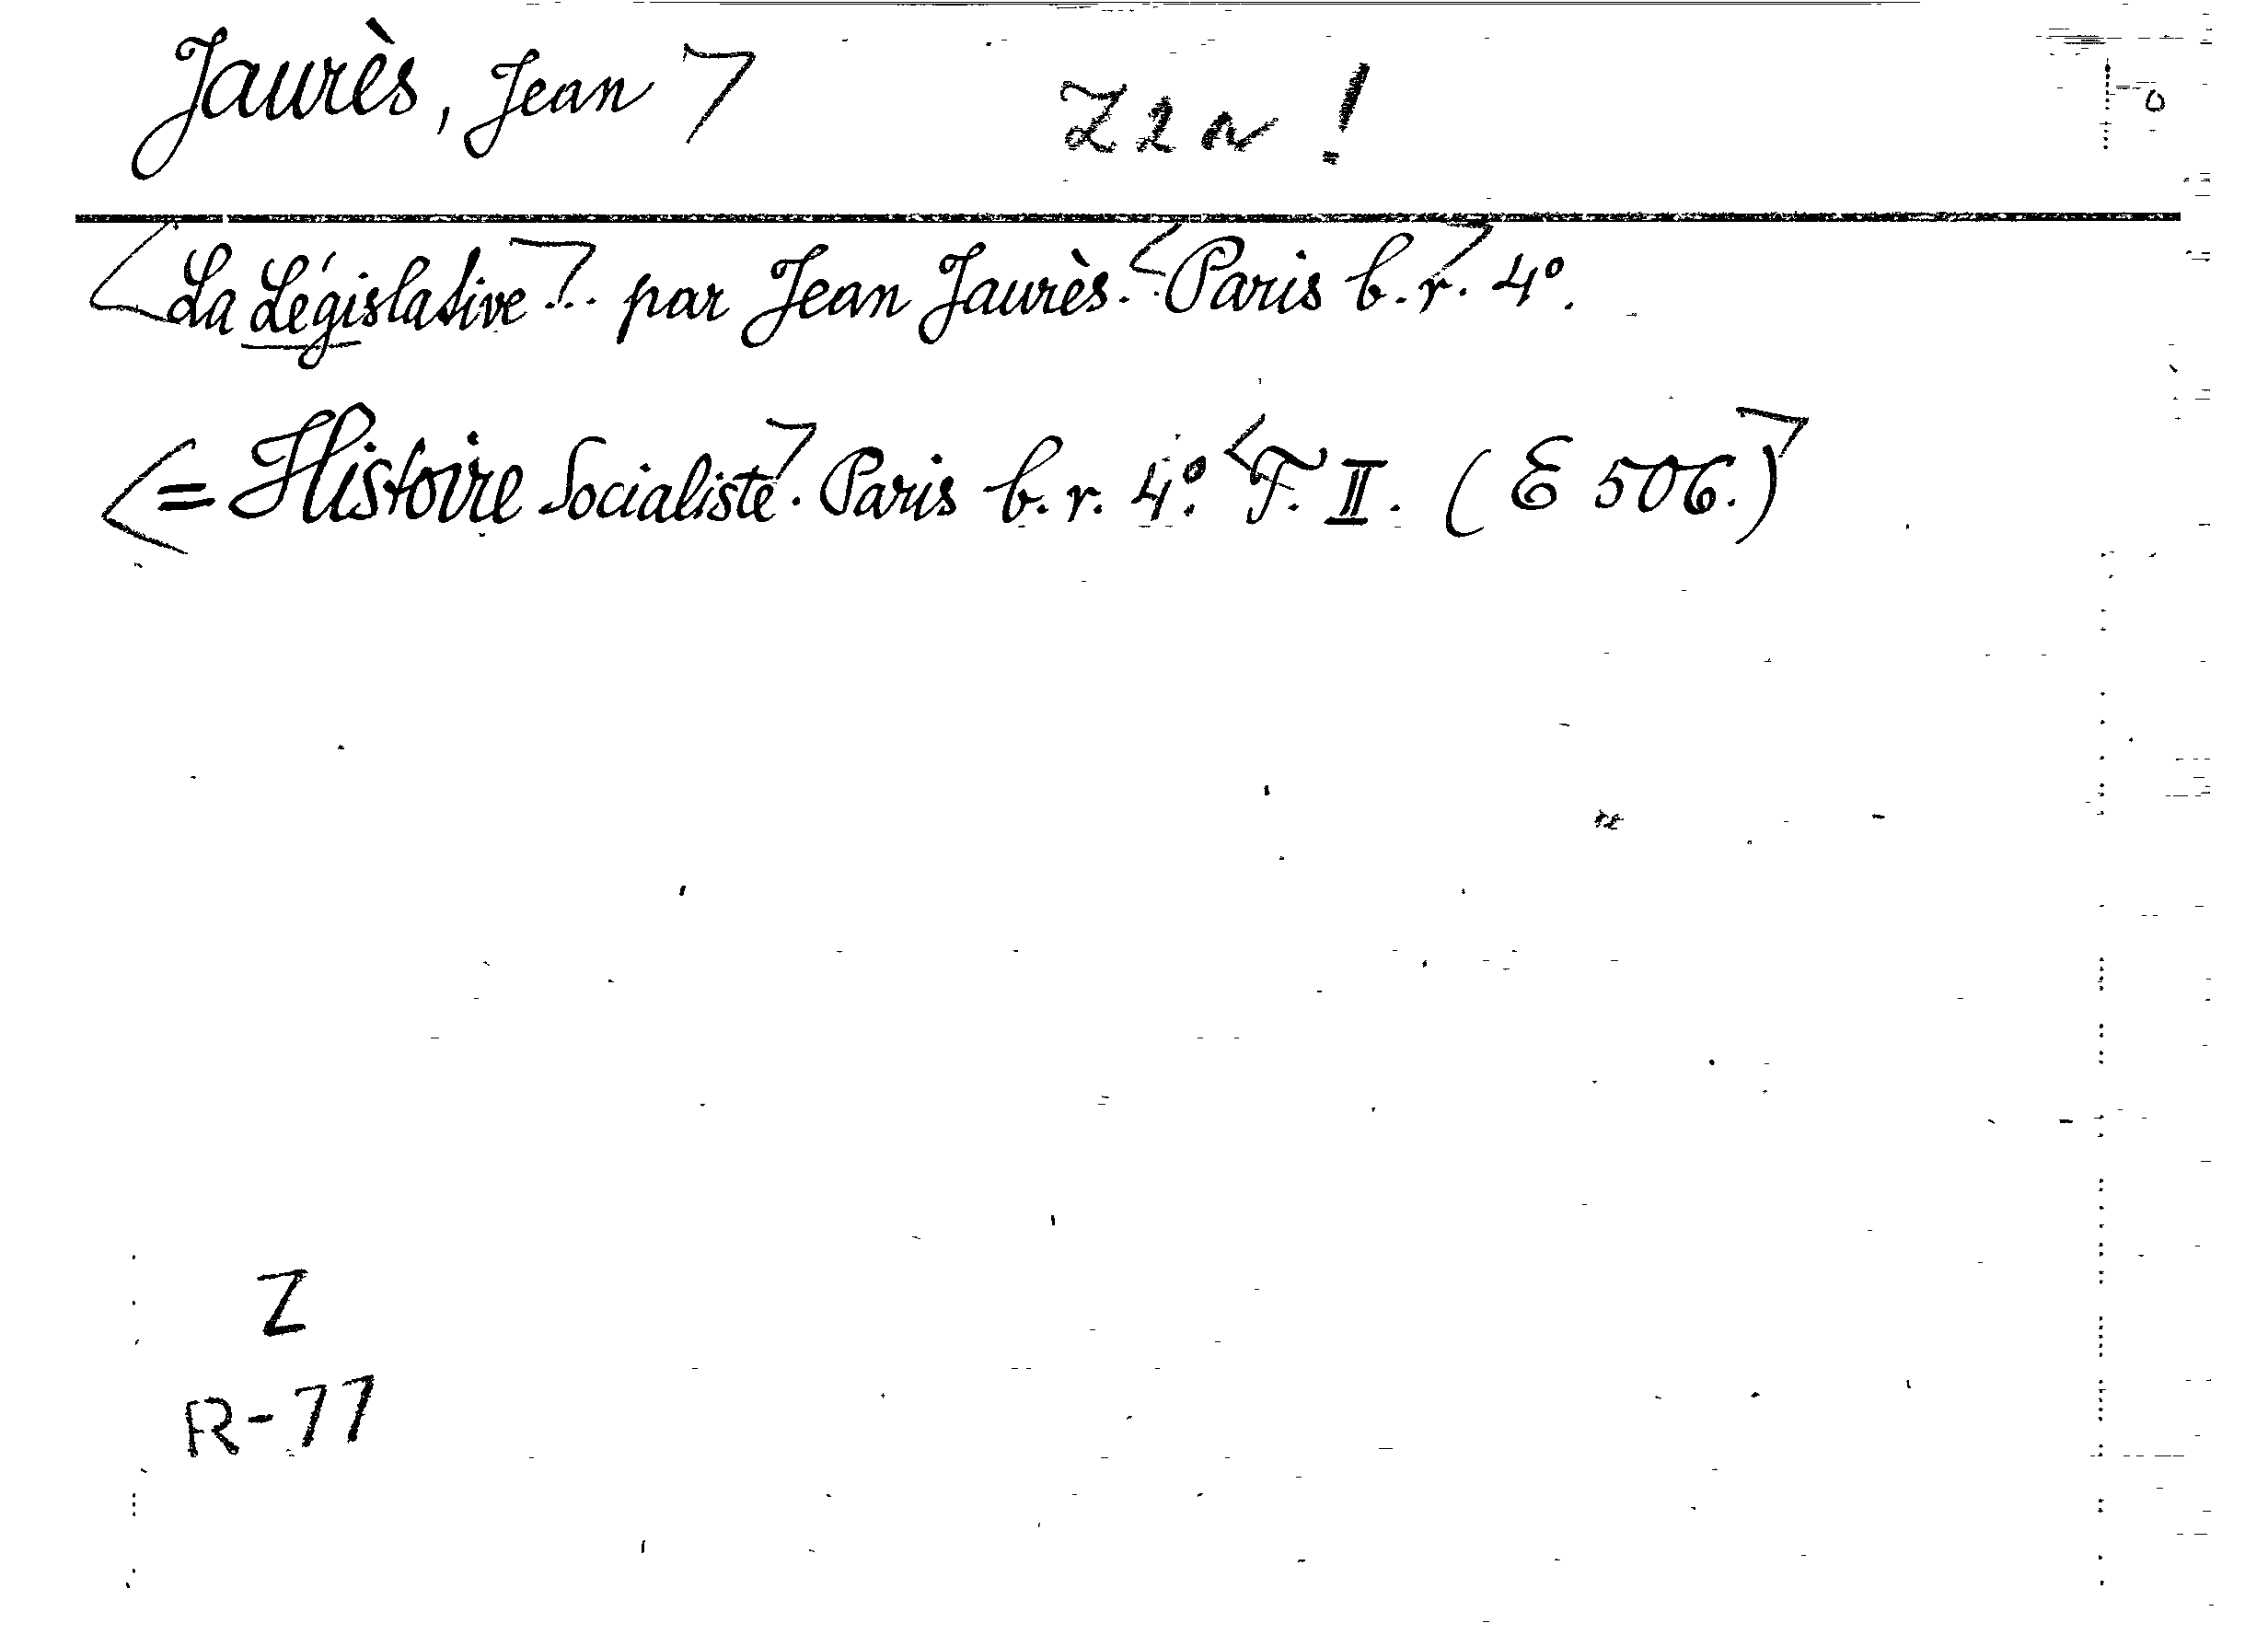 Jaurès, Jean Z 2 a !
La Législative... par Jean Jaurès. Paris b.r. 4°.
= Histoire Socialiste. Paris b.r. 4°. T. II. (E 506.)
Z
R-77